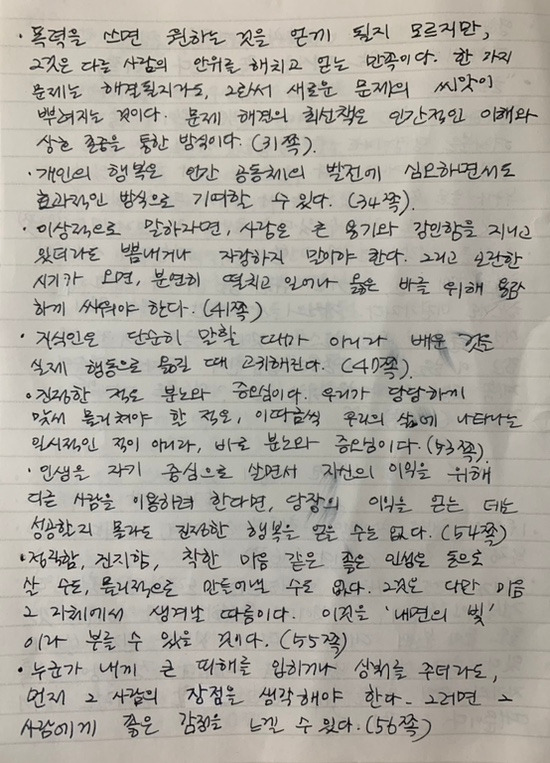 · 폭력을 쓰면 원하는 것을 얻게 될지 모르지만,
그것은 다른 사람의 안위를 해치고 얻는 만족이다. 한 가지
문제는 해결될지라도, 그래서 새로운 문제의 씨앗이
뿌려지는 것이다. 문제 해결의 최선책은 인간적인 이해와
상호 존중을 통한 방식이다. (31쪽).
· 개인의 행복은 인간 공동체의 발전에 심오하면서도
효과적인 방식으로 기여할 수 있다. (34쪽).
· 이상적으로 말하자면, 사람은 큰 용기와 강인함을 지니고
있더라도 뽐내거나 자랑하지 말아야 한다. 그리고 곤란한
시기가 오면, 분연히 떨치고 일어나 옳은 바를 위해 용감
하게 싸워야 한다. (41쪽)
· 지식인은 단순히 말할 때가 아니라 배운 것을
실제 행동으로 옮길 때 고귀해진다. (47쪽).
· 진정한 적은 분노와 증오심이다. 우리가 당당하게
맞서 물리쳐야 한 적은, 이따금씩 우리의 삶에 나타나는
일시적인 적이 아니라, 바로 분노와 증오심이다. (53쪽).
· 인생을 자기 중심으로 살면서 자신의 이익을 위해
다른 사람을 이용하려 한다면, 당장의 이익을 얻는 데는
성공할지 몰라도 진정한 행복을 얻을 수는 없다. (54쪽)
· 정직함, 진지함, 착한 마음 같은 좋은 인성은 돈으로
살 수도, 물리적으로 만들어낼 수도 없다. 그것은 다만 마음
그 자체에서 생겨날 따름이다. 이것을 '내면의 빛'
이라 부를 수 있을 것이다. (55쪽)
· 누군가 내게 큰 피해를 입히거나 상처를 주더라도,
먼저 그 사람의 장점을 생각해야 한다. 그러면 그
사람에게 좋은 감정을 느낄 수 있다. (56쪽)